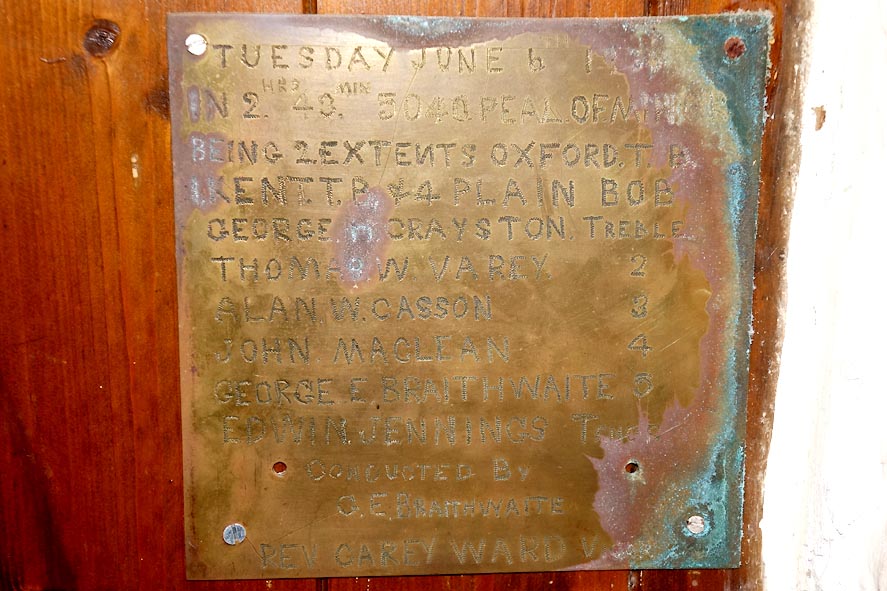 TUESDAY JUNE 6
IN 2.HRS 43.MIN 5040.PEAL.OF.MINOR
BEING 2.EXTENTS OXFORD.T.B
KENT.T.B &4 PLAIN BOB
GEORGE H CRAYSTON. TREBLE.
THOMAS W. VAREY. 2
ALAN.W.CASSON 3
JOHN. MACLEAN 4
GEORGE E.BRAITHWAITE 5
EDWIN.JENNINGS TENOR
CONDUCTED BY
G.E.BRAITHWAITE
REV CAREY WARD VICAR